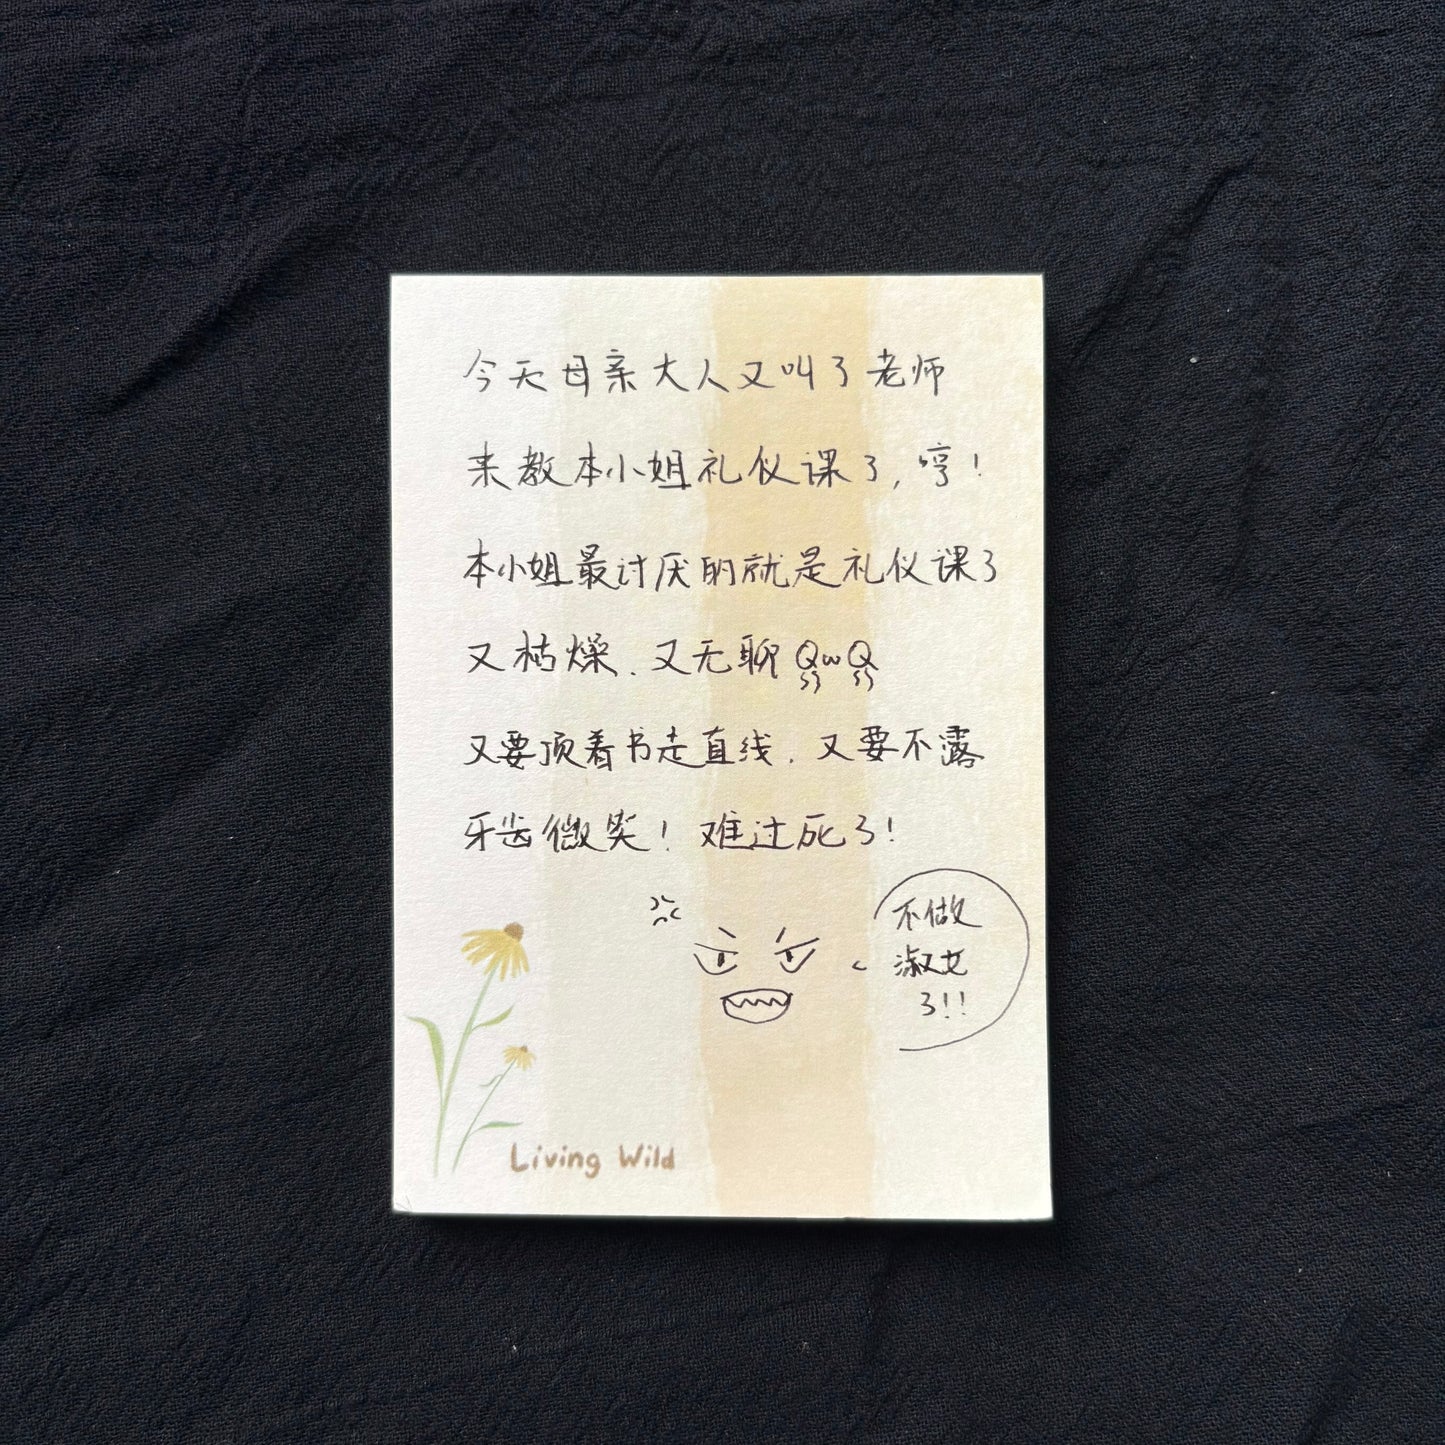 今天母亲大人又叫了老师
来教本小姐礼仪课了,哼!
本小姐最讨厌的就是礼仪课了
又枯燥.又无聊QwQ
又要顶着书走直线.又要不露
牙齿微笑!难过死了!
不做
淑女
了!!
Living Wild